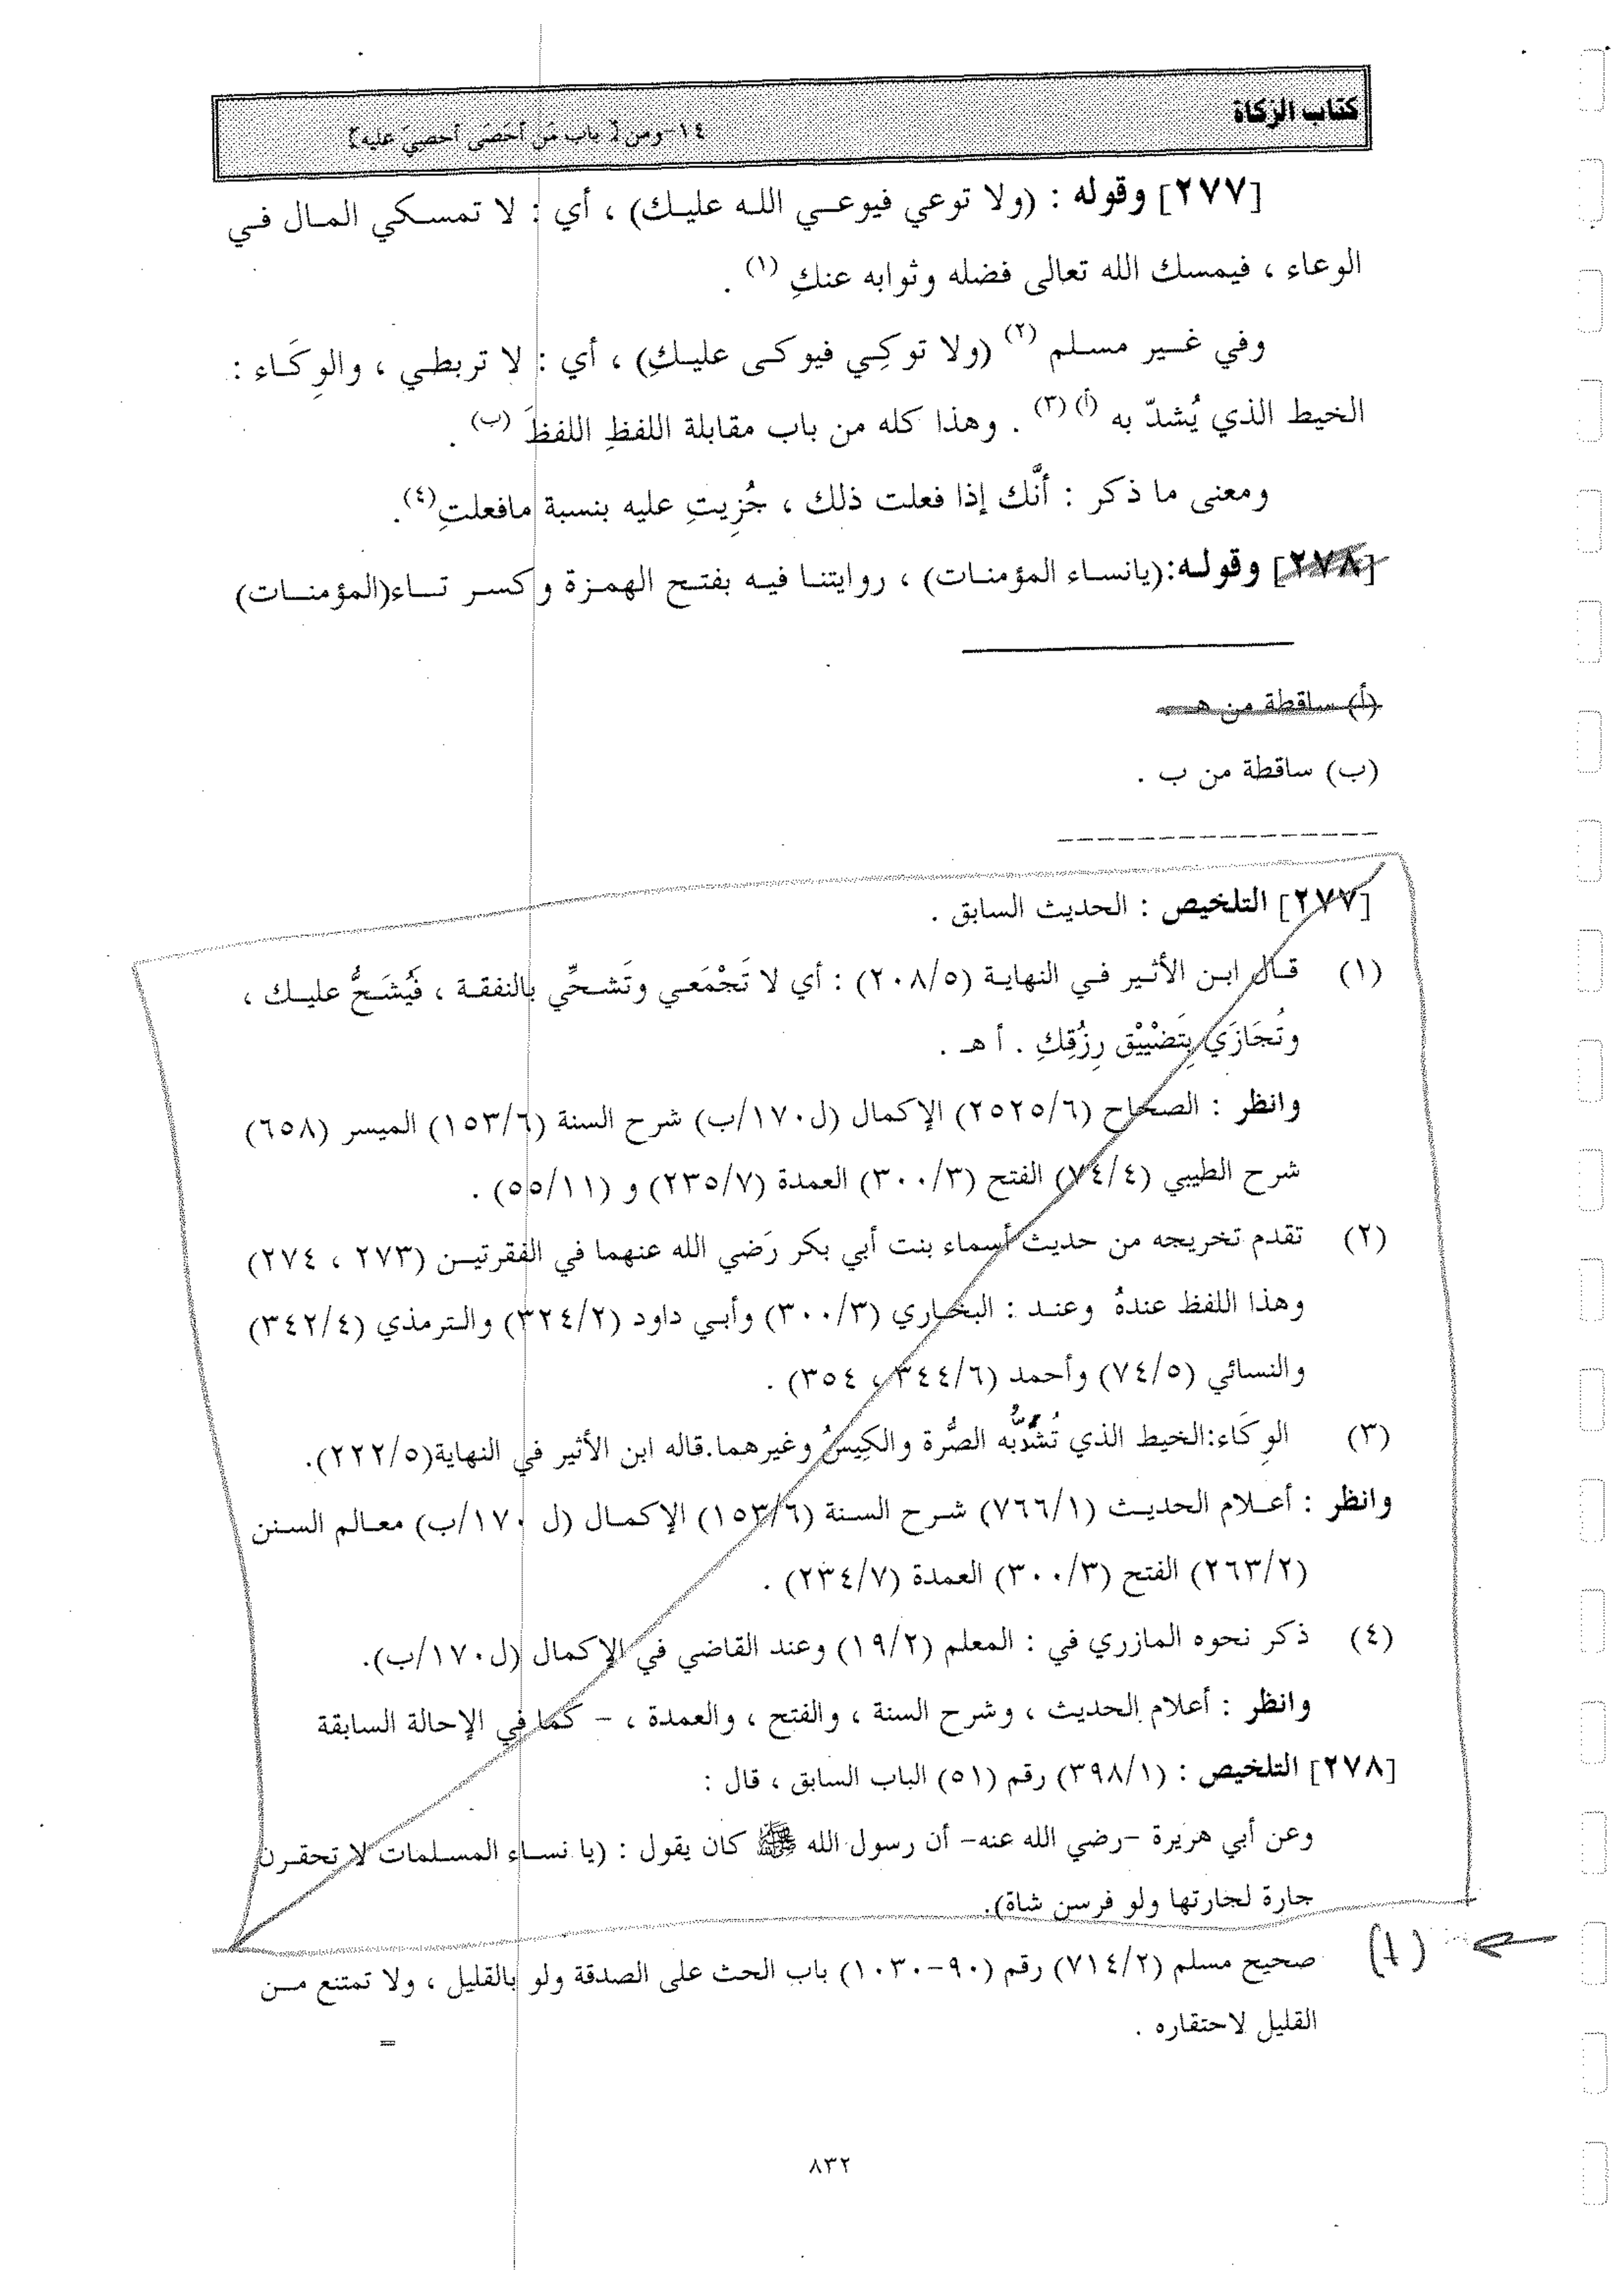 كتاب الزكاة
١٤-ومن [ باب مَن أحصَى أحصيَ عليه]
[٢٧٧] وقوله : (ولا توعي فيوعي الله عليك) ، أي : لا تمسكي المال في
الوعاء ، فيمسك الله تعالى فضله وثوابه عنكِ (١) .
وفي غير مسلم (٢) (ولا توكِي فيوكى عليكِ) ، أي : لا تربطي ، والوِكَاء :
الخيط الذي يُشدّ به (أ) (٣) . وهذا كله من باب مقابلة اللفظِ اللفظَ (ب) .
ومعنى ما ذكر : أنَّك إذا فعلت ذلك ، جُزِيتِ عليه بنسبة مافعلتِ(٤).
[٢٧٨] وقوله:(يانساء المؤمنات) ، روايتنا فيه بفتح الهمزة وكسر تاء(المؤمنات)
(أ) ساقطة من هـ .
(ب) ساقطة من ب .
[٢٧٧] التلخيص : الحديث السابق .
(١) قال ابن الأثير في النهاية (٢٠٨/٥) : أي لا تَجْمَعي وتَشحِّي بالنفقة ، فَيُشَحُّ عليك ،
وتُجَازَي بِتَضْيِيْق رِزْقِكِ . أ هـ .
وانظر : الصحاح (٢٥٢٥/٦) الإكمال (ل١٧٠/ب) شرح السنة (١٥٣/٦) الميسر (٦٥٨)
شرح الطيبي (٧٤/٤) الفتح (٣٠٠/٣) العمدة (٢٣٥/٧) و (٥٥/١١) .
(٢) تقدم تخريجه من حديث أسماء بنت أبي بكر رَضي الله عنهما في الفقرتين (٢٧٣ ، ٢٧٤)
وهذا اللفظ عندهُ وعند : البخاري (٣٠٠/٣) وأبي داود (٣٢٤/٢) والترمذي (٣٤٢/٤)
والنسائي (٧٤/٥) وأحمد (٣٤٤/٦ ، ٣٥٤) .
(٣) الوِكَاء:الخيط الذي تُشَدُّبه الصُّرة والكِيسُ وغيرهما.قاله ابن الأثير في النهاية(٢٢٢/٥).
وانظر : أعلام الحديث (٧٦٦/١) شرح السنة (١٥٣/٦) الإكمال (ل ١٧٠/ب) معالم السنن
(٢٦٣/٢) الفتح (٣٠٠/٣) العمدة (٢٣٤/٧) .
(٤) ذكر نحوه المازري في : المعلم (١٩/٢) وعند القاضي في الإكمال (ل١٧٠/ب).
وانظر : أعلام الحديث ، وشرح السنة ، والفتح ، والعمدة ، – كما في الإحالة السابقة
[٢٧٨] التلخيص : (٣٩٨/١) رقم (٥١) الباب السابق ، قال :
وعن أبي هريرة –رضي الله عنه– أن رسول الله ﷺ كان يقول : (يا نساء المسلمات لا تحقرن
جارة لجارتها ولو فرسن شاة).
صحيح مسلم (٧١٤/٢) رقم (٩٠-١٠٣٠) باب الحث على الصدقة ولو بالقليل ، ولا تمتنع من
القليل لاحتقاره .
=
٨٣٢